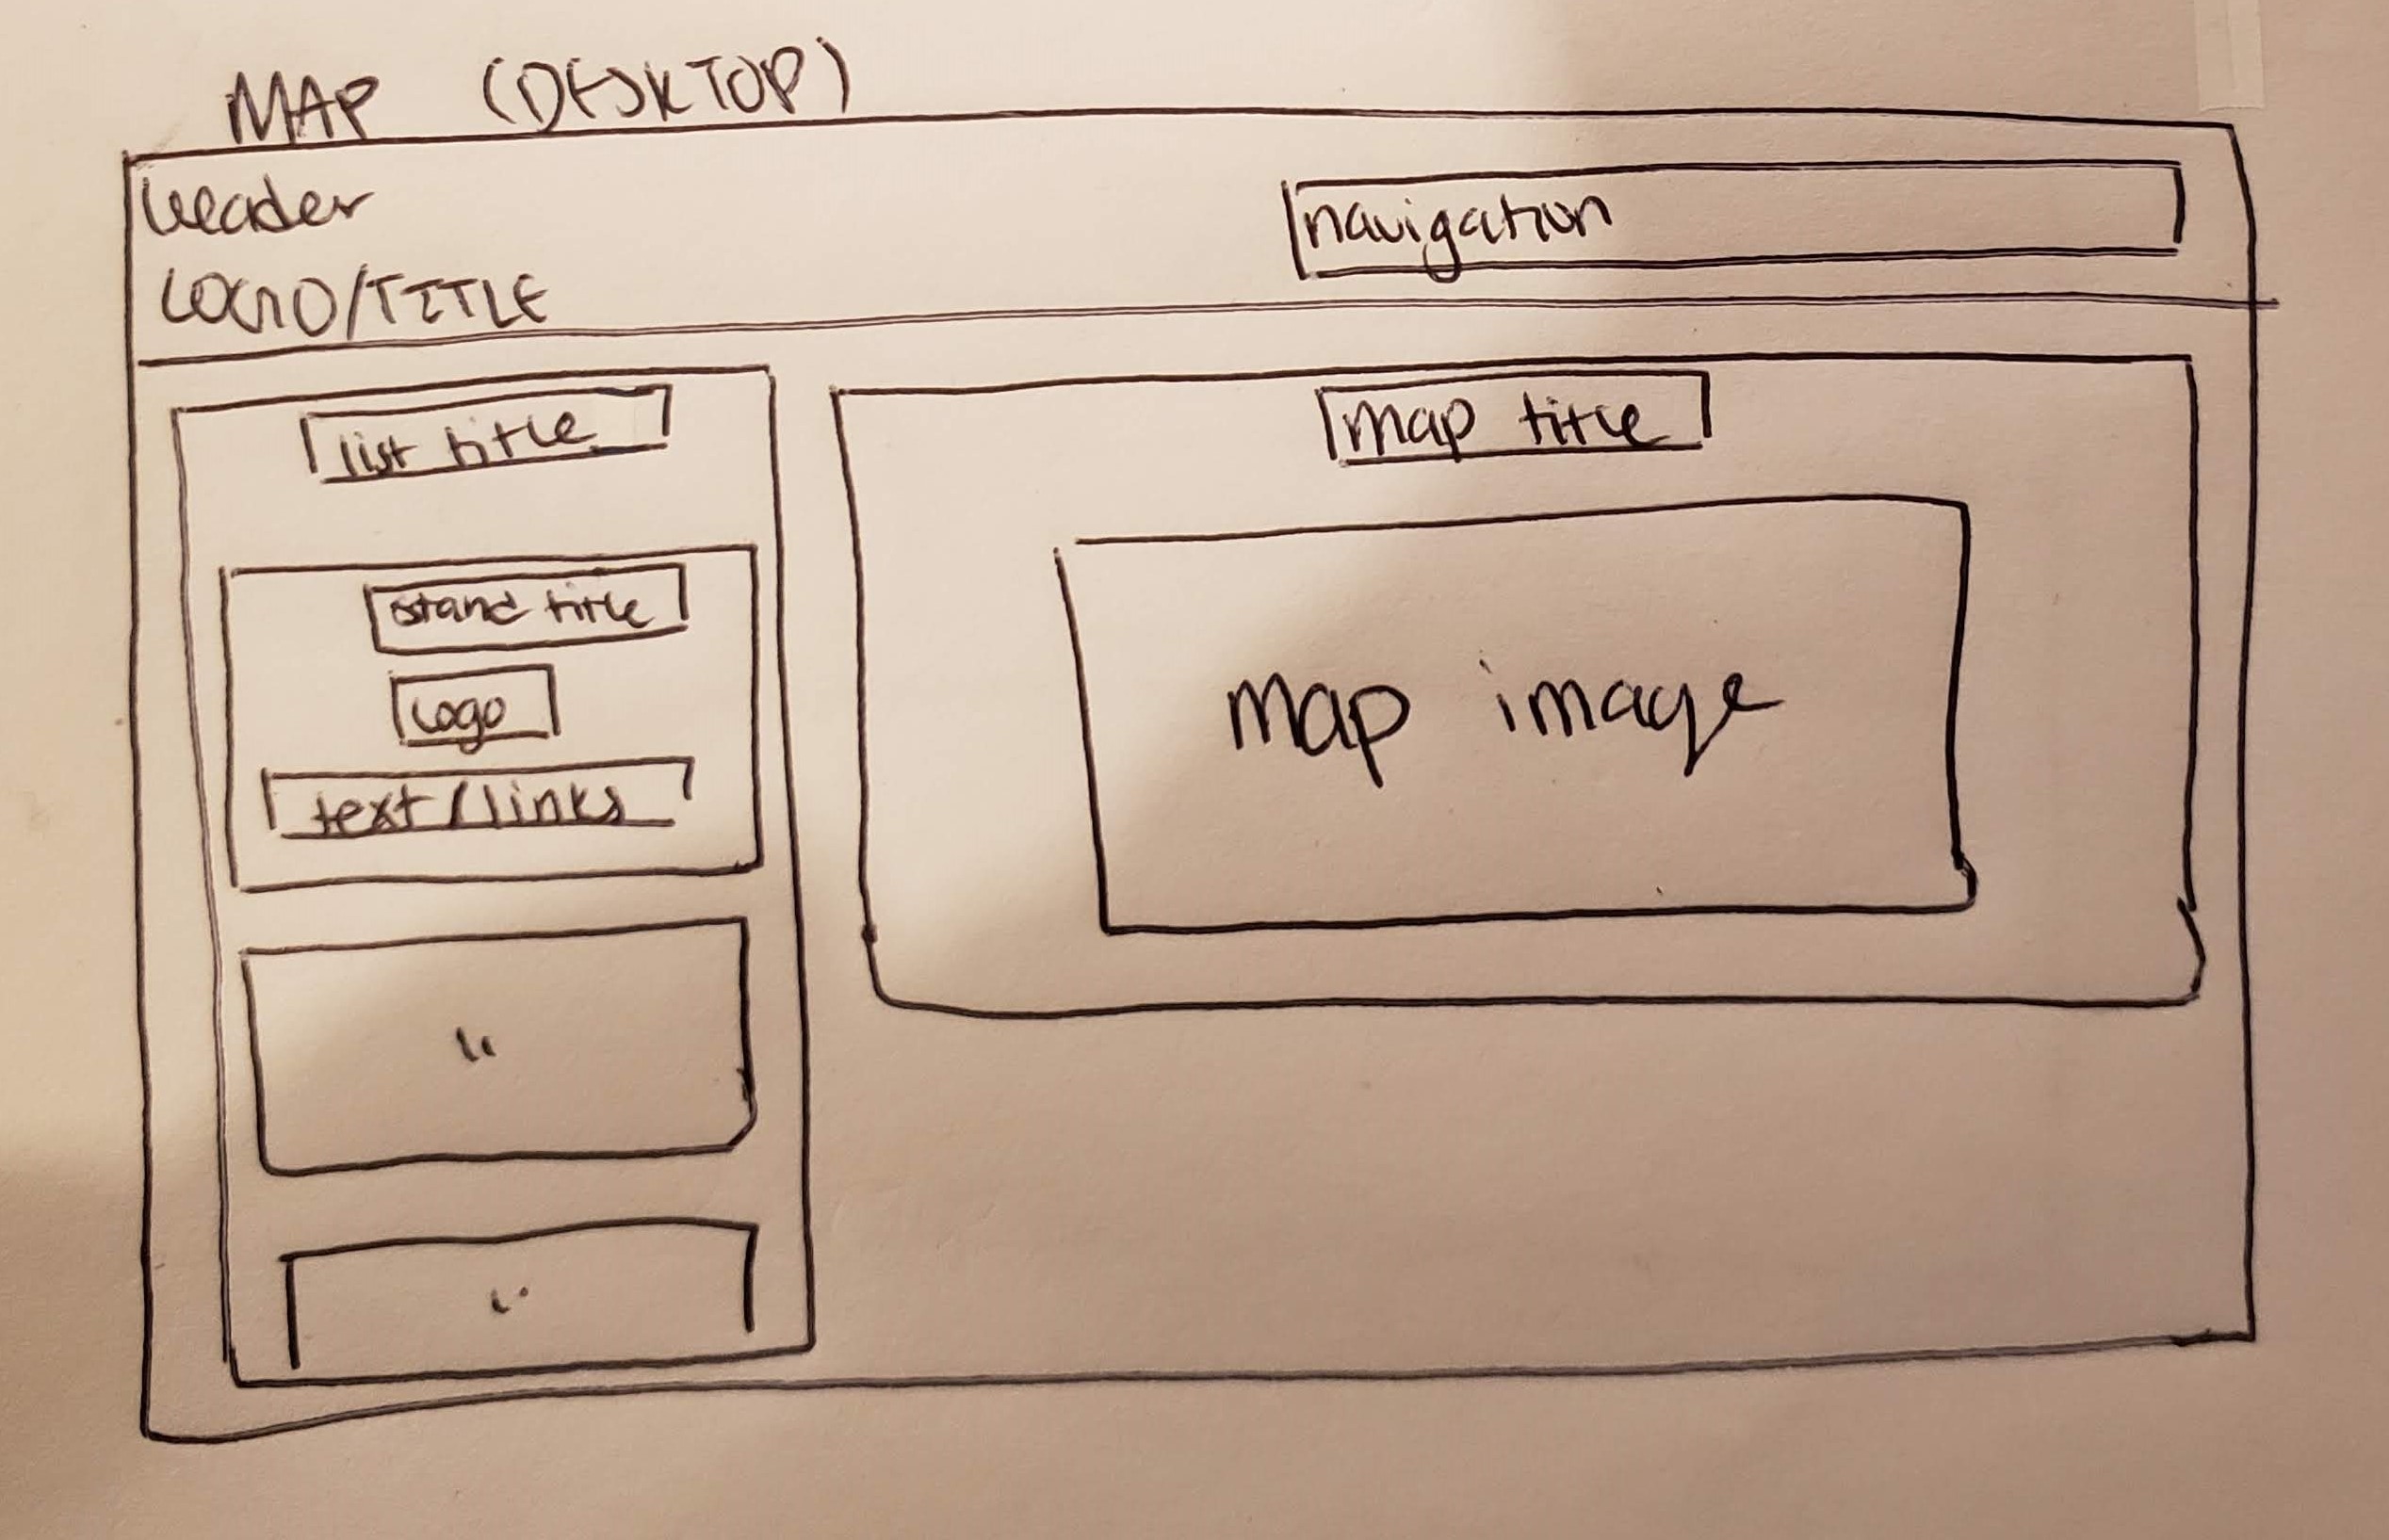 MAP (DESKTOP)
header
navigation
LOGO/TITLE
list title
stand title
logo
text/links
"
"
map title
map image